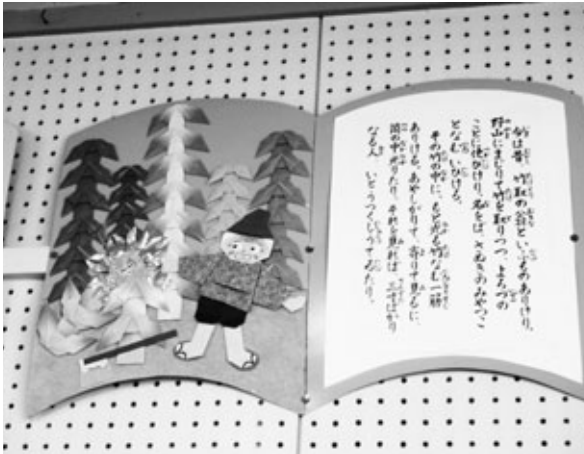 今は昔、竹取の翁といふものありけり。
野山にまじりて竹を取りつつ、よろづの
ことに使ひけり。名をば、さぬきのみやつこ
となむ いひける。
その竹の中に、もと光る竹なむ一筋
ありける。あやしがりて、寄りて見るに、
筒の中光りたり。それを見れば、三寸ばかり
なる人 いとうつくしうてゐたり。